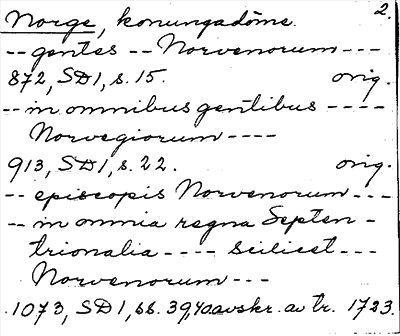 Norge, konungadöme. 2.
-- gentes -- Norvenorum ---
872, SD1, s. 15. orig.
-- in omnibus gentibus ----
Norvegiorum ----
913, SD1, s. 22. orig.
-- episcopis Norvenorum ---
-- in omnia regna Septen-
trionalia ---- scilicet ---
Norvenorum ---
1073, SD1, ss. 39,40 avskr. av tr. 1723.